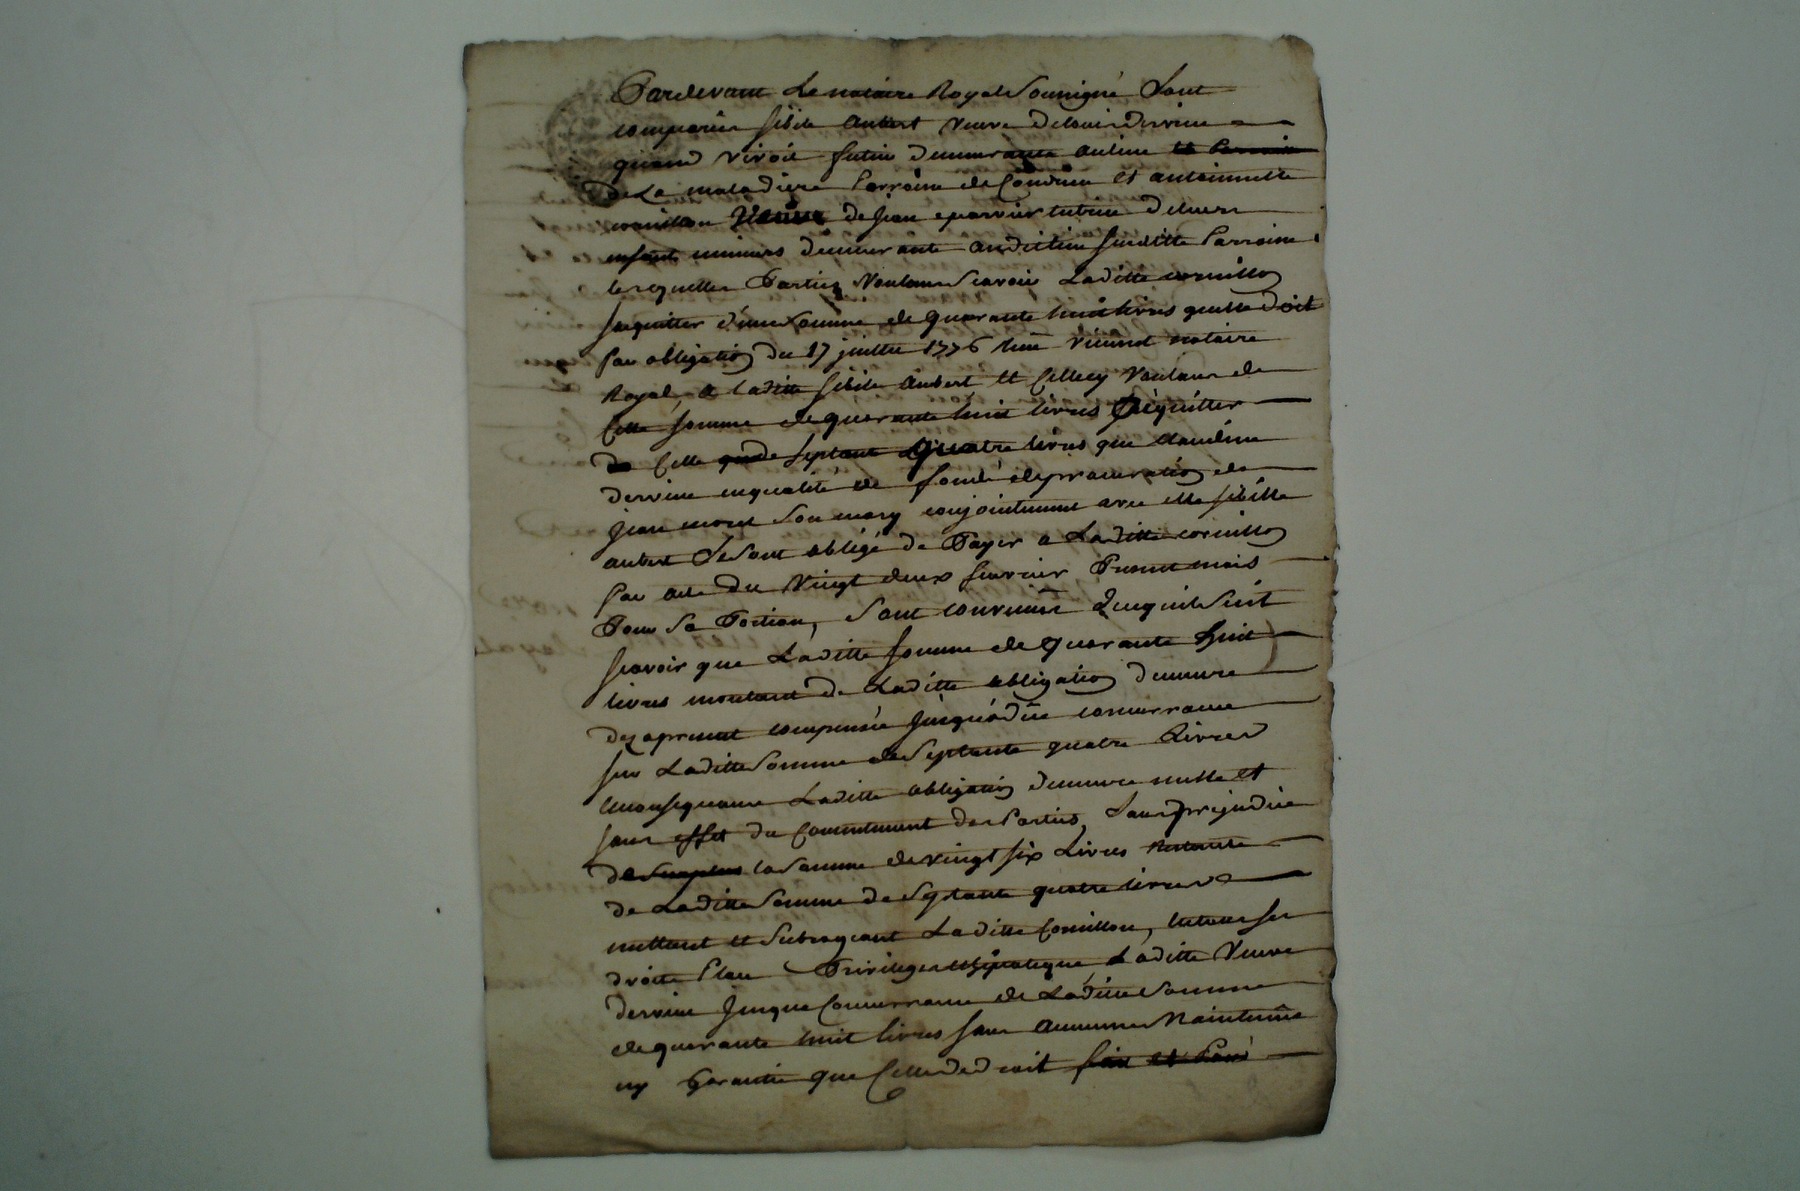 Pardevant Le notaire Royal Soussigné Sont
comparües sibile aubert veuve de Louis dervieu
quand vivoit demeurante au lieu
de La maladiere Parroisse de Condrieu et antoinnette
cornillon veuve de jean tutrice de leurs
enfants mineurs demeurante audit lieu susditte Parroisse
lesquelles Parties voulant scavoir Laditte cornillon
s'aquitter d'une somme de quarante huit livres quelle doit
par obligation du 17 juillet 1776 notaire
Royal, a laditte sibile aubert et Cellecy voulant de
Cette somme de quarante huit livres s'aquitter
de Celle de septante quatre livres que claudine
dervieu en qualité de fondé de procuration de
jean son mary conjointement avec elle sibille
aubert Se sont obligé de Payer a Laditte cornillon
par acte du vingt deux fevrier Present mois
Pour Sa Portion, sont convenües de ce qui suit
scavoir que Laditte somme de quarante huit
livres montant de Laditte obligation demeure
des a present compensée jusqu'a düe concurrance
sur Laditte somme de septante quatre Livres
en consequance Laditte obligation demeure nulle et
sans effet du consentement des Parties, sans prejudice
la somme de vingt six Livres restante
de Laditte somme de septante quatre livres
mettant et subrogeant Laditte Cornillon, en tous ses
droits Place Privileges et hipoteque, Laditte veuve
dervieu jusque concurrance de Laditte somme
de quarante huit livres sans aucune Maintenüe
ny Garantie que Celle de droit